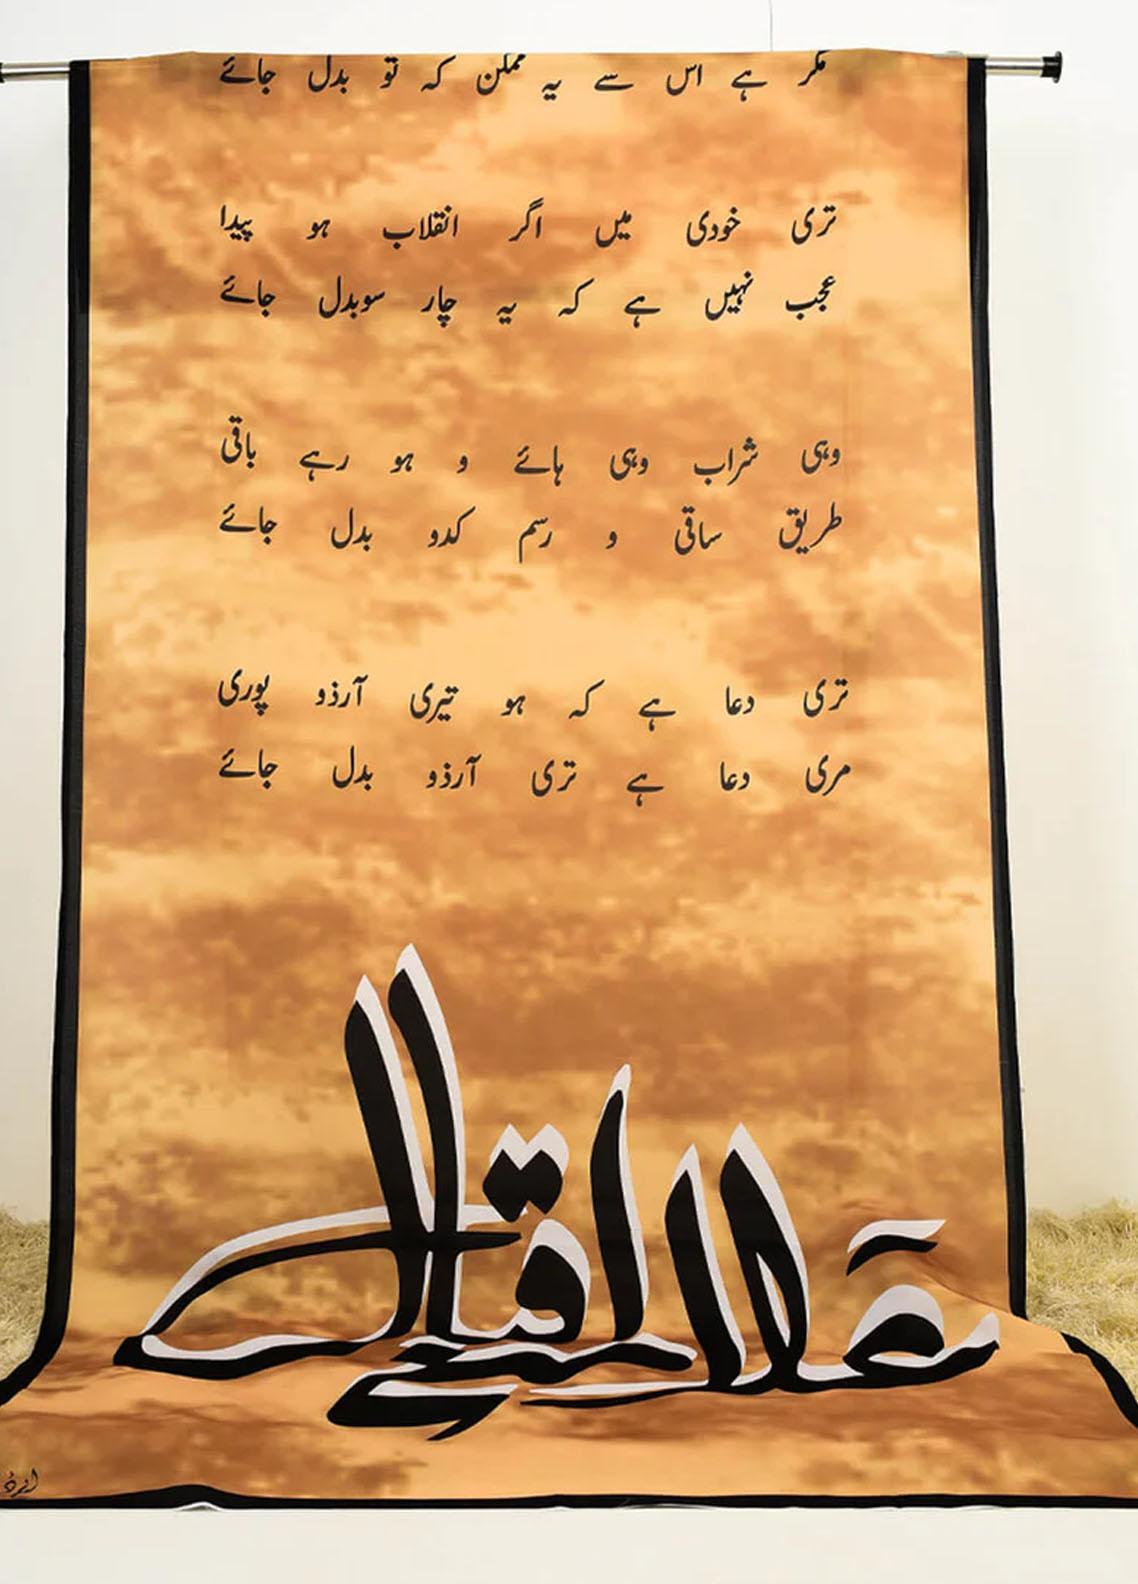 مگر ہے اس سے یہ ممکن کہ تو بدل جائے
تری خودی میں اگر انقلاب ہو پیدا
عجب نہیں ہے کہ یہ چار سوبدل جائے
وہی شراب وہی ہائے و ہو رہے باقی
طریق ساقی و رسم کدو بدل جائے
تری دعا ہے کہ ہو تیری آرذو پوری
مری دعا ہے تری آرذو بدل جائے